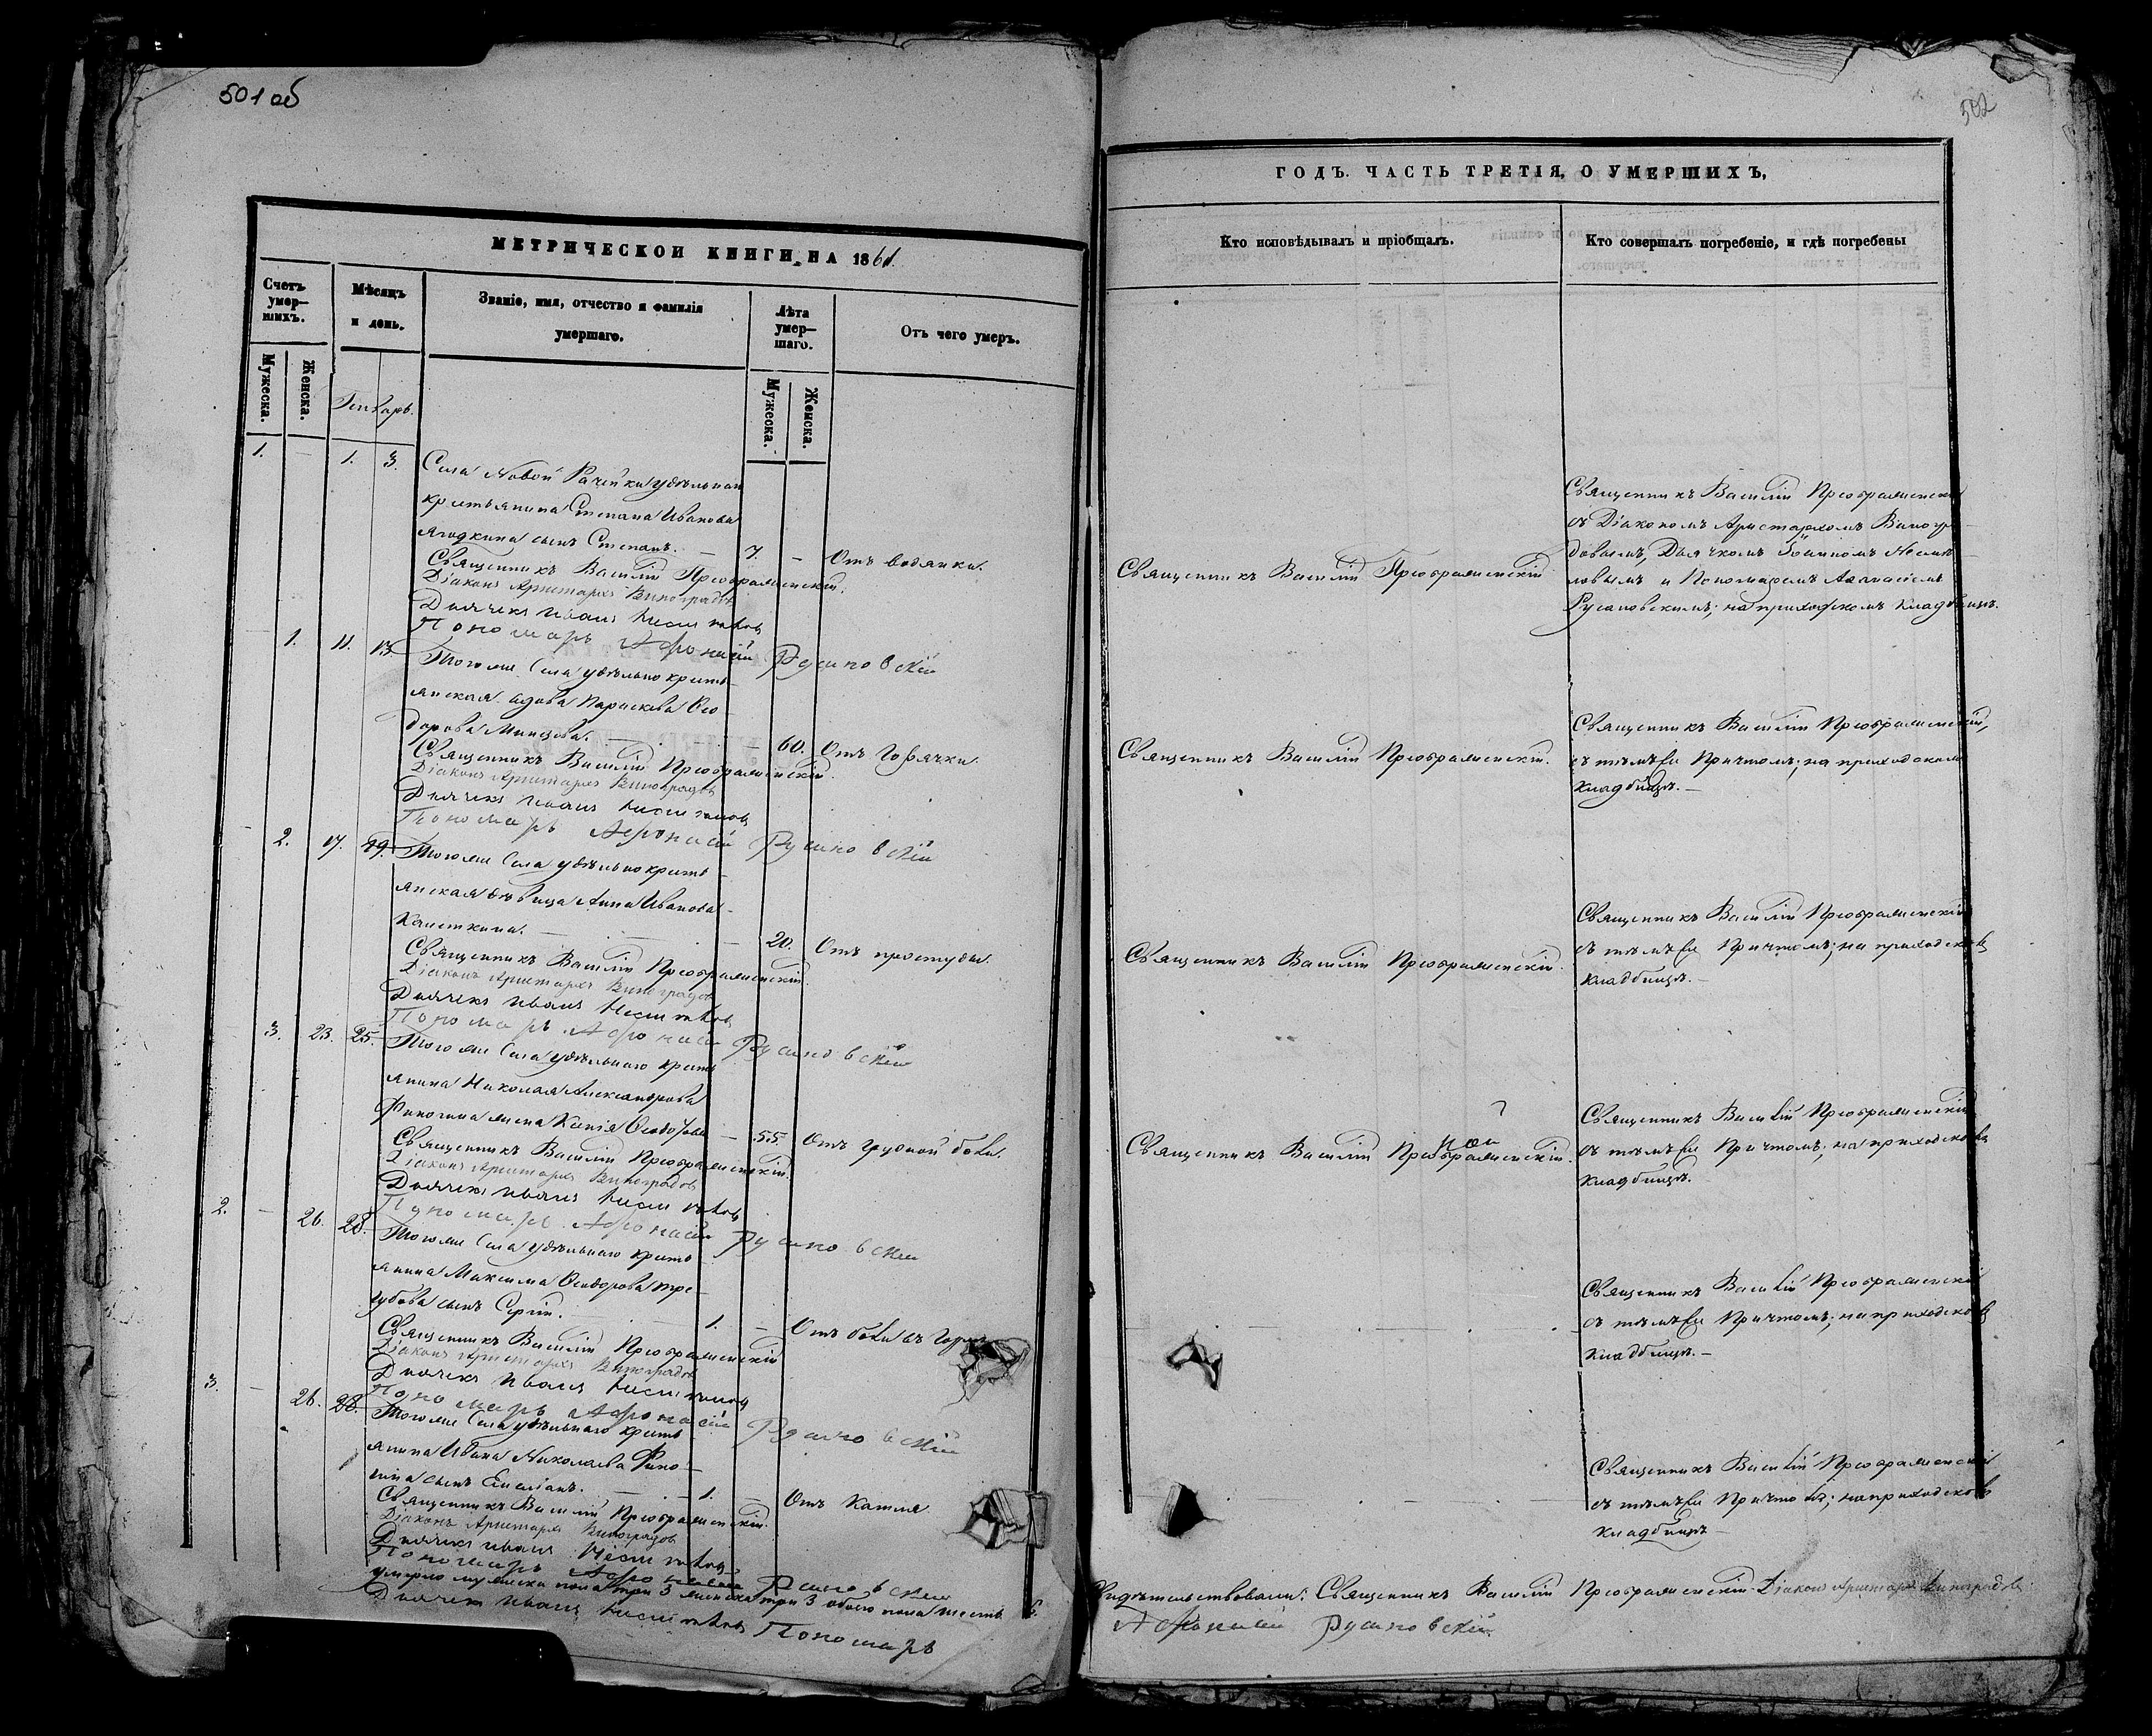 501 об
МЕТРИЧЕСКОЙ КНИГИ НА 1861.
Счетъ умер-шихъ.
Мужеска.
Женска.
Мѣсяцъ и день.
Званіе, имя, отчество и фамилія умершаго.
Лѣта умер-шаго.
Мужеска.
Женска.
Отъ чего умеръ.
Генварь.
1. — 1. 3. Села Новой Рачейки удѣльнаго
крестьянина Степана Иванова
Ягодкина сынъ Степанъ. — 7. — Отъ водянки.
Священникъ Василій Преображенскій.
Діаконъ Аристархъ Виноградовъ
Дьячекъ Иванъ
Пономарь Афонасій Русановскій
— 1. 11. 13. Того же Села удѣльно кресть-
янская вдова Параскева Ѳео-
дорова — 60. Отъ Горячки.
Священникъ Василій Преображенскій.
Діаконъ Аристархъ Виноградовъ
Дьячекъ Иванъ
Пономарь Афонасій Русановскій
— 2. 17. 19. Того же Села удѣльно кресть-
янская дѣвица Анна Иванова
— 20. Отъ простуды.
Священникъ Василій Преображенскій.
Діаконъ Аристархъ Виноградовъ
Дьячекъ Иванъ
Пономарь Афонасій Русановскій
3. 23. 25. Того же Села удѣльнаго кресть-
янина Николая Александрова
Финогина жена Ксенія Ѳеодорова — 55. Отъ грудной боли.
Священникъ Василій Преображенскій.
Діаконъ Аристархъ Виноградовъ
Дьячекъ Иванъ
Пономарь Афонасій Русановскій
2. — 26. 28. Того же Села удѣльнаго кресть-
янина Максима Ѳеодорова Тре-
губова сынъ Сергій. 1. — Отъ боли въ
Священникъ Василій Преображенскій
Діаконъ Аристархъ Виноградовъ
Дьячекъ Иванъ
Пономарь Афонасій Русановскій
3. — 26. 28. Того же Села удѣльнаго кресть-
янина Ивана Николаева Фино-
гина сынъ Емеліанъ. 1. — Отъ Кашля
Священникъ Василій Преображенскій.
Діаконъ Аристархъ Виноградовъ
Дьячекъ Иванъ
Пономарь Афонасій Русановскій
умерло мужеска пола три 3 женска три 3 обоего пола шесть 6.
Дьячекъ Иванъ Пономарь
502
ГОДЪ. ЧАСТЬ ТРЕТІЯ, О УМЕРШИХЪ,
Кто исповѣдывалъ и пріобщалъ.
Кто совершалъ погребеніе, и гдѣ погребены
Священникъ Василій Преображенскій
Священникъ Василій Преображенскій
съ Діакономъ Аристархомъ Виногра-
довымъ, Дьячкомъ Іоанномъ
и Пономаремъ Аѳанасіемъ
Русановскимъ; на приходскомъ кладбищѣ.
Священникъ Василій Преображенскій.
Священникъ Василій Преображенскій,
съ тѣмъ же Причтомъ; на приходскомъ
кладбищѣ. —
Священникъ Василій Преображенскій.
Священникъ Василій Преображенскій
съ тѣмъ же Причтомъ; на приходскомъ
кладбищѣ. —
Священникъ Василій Преображенскій.
Священникъ Василій Преображенскій
съ тѣмъ же Причтомъ; на приходскомъ
кладбищѣ.
Священникъ Василій Преображенскій
съ тѣмъ же Причтомъ; на приходскомъ
кладбищѣ. —
Священникъ Василій Преображенскій
съ тѣмъ же Причтомъ; на приходскомъ
кладбищѣ —
Свидѣтельствовали: Священникъ Василій Преображенскій Діаконъ Аристархъ Виноградовъ
Афонасій Русановскій.